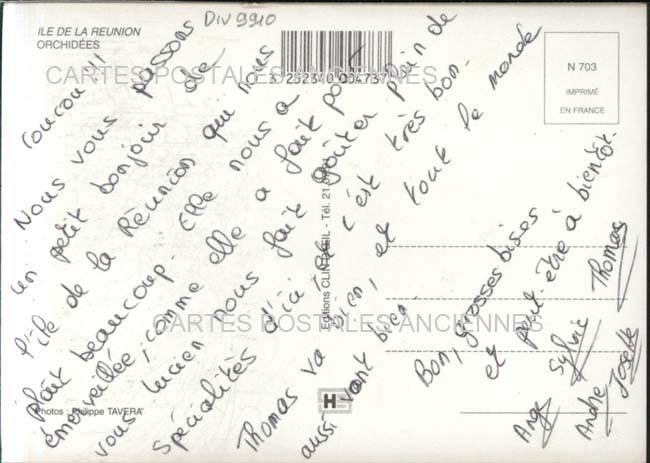 DIV 9910
ILE DE LA REUNION
ORCHIDÉES
N 703
IMPRIMÉ
EN FRANCE
CARTES POSTALES ANCIENNES
CARTES POSTALES ANCIENNES
Editions CLIN D'ŒIL - Tél. 21
Photos : Philippe TAVERA
H
Coucou !!!
Nous vous passons
un petit bonjour de
l'île de la Réunion qui nous
plaît beaucoup. Elle nous a
émerveillée, comme elle a fait pour
vous Lucien nous fait goûter plein de
spécialités d'ici c'est très bon.
Thomas va bien, et tout le monde
aussi vont bien.
Bon, grosses bises
et peut-être à bientôt.
Ange
Sylvie
Thomas
André
Josette